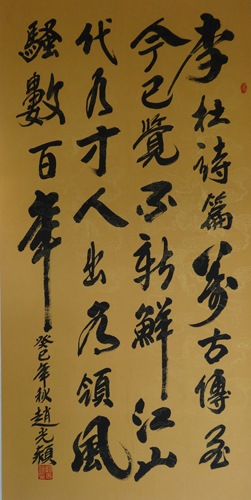 李杜詩篇万古傳至
今已覺不新鮮江山
代有才人出各領風
騷數百年
癸巳年秋趙光頫